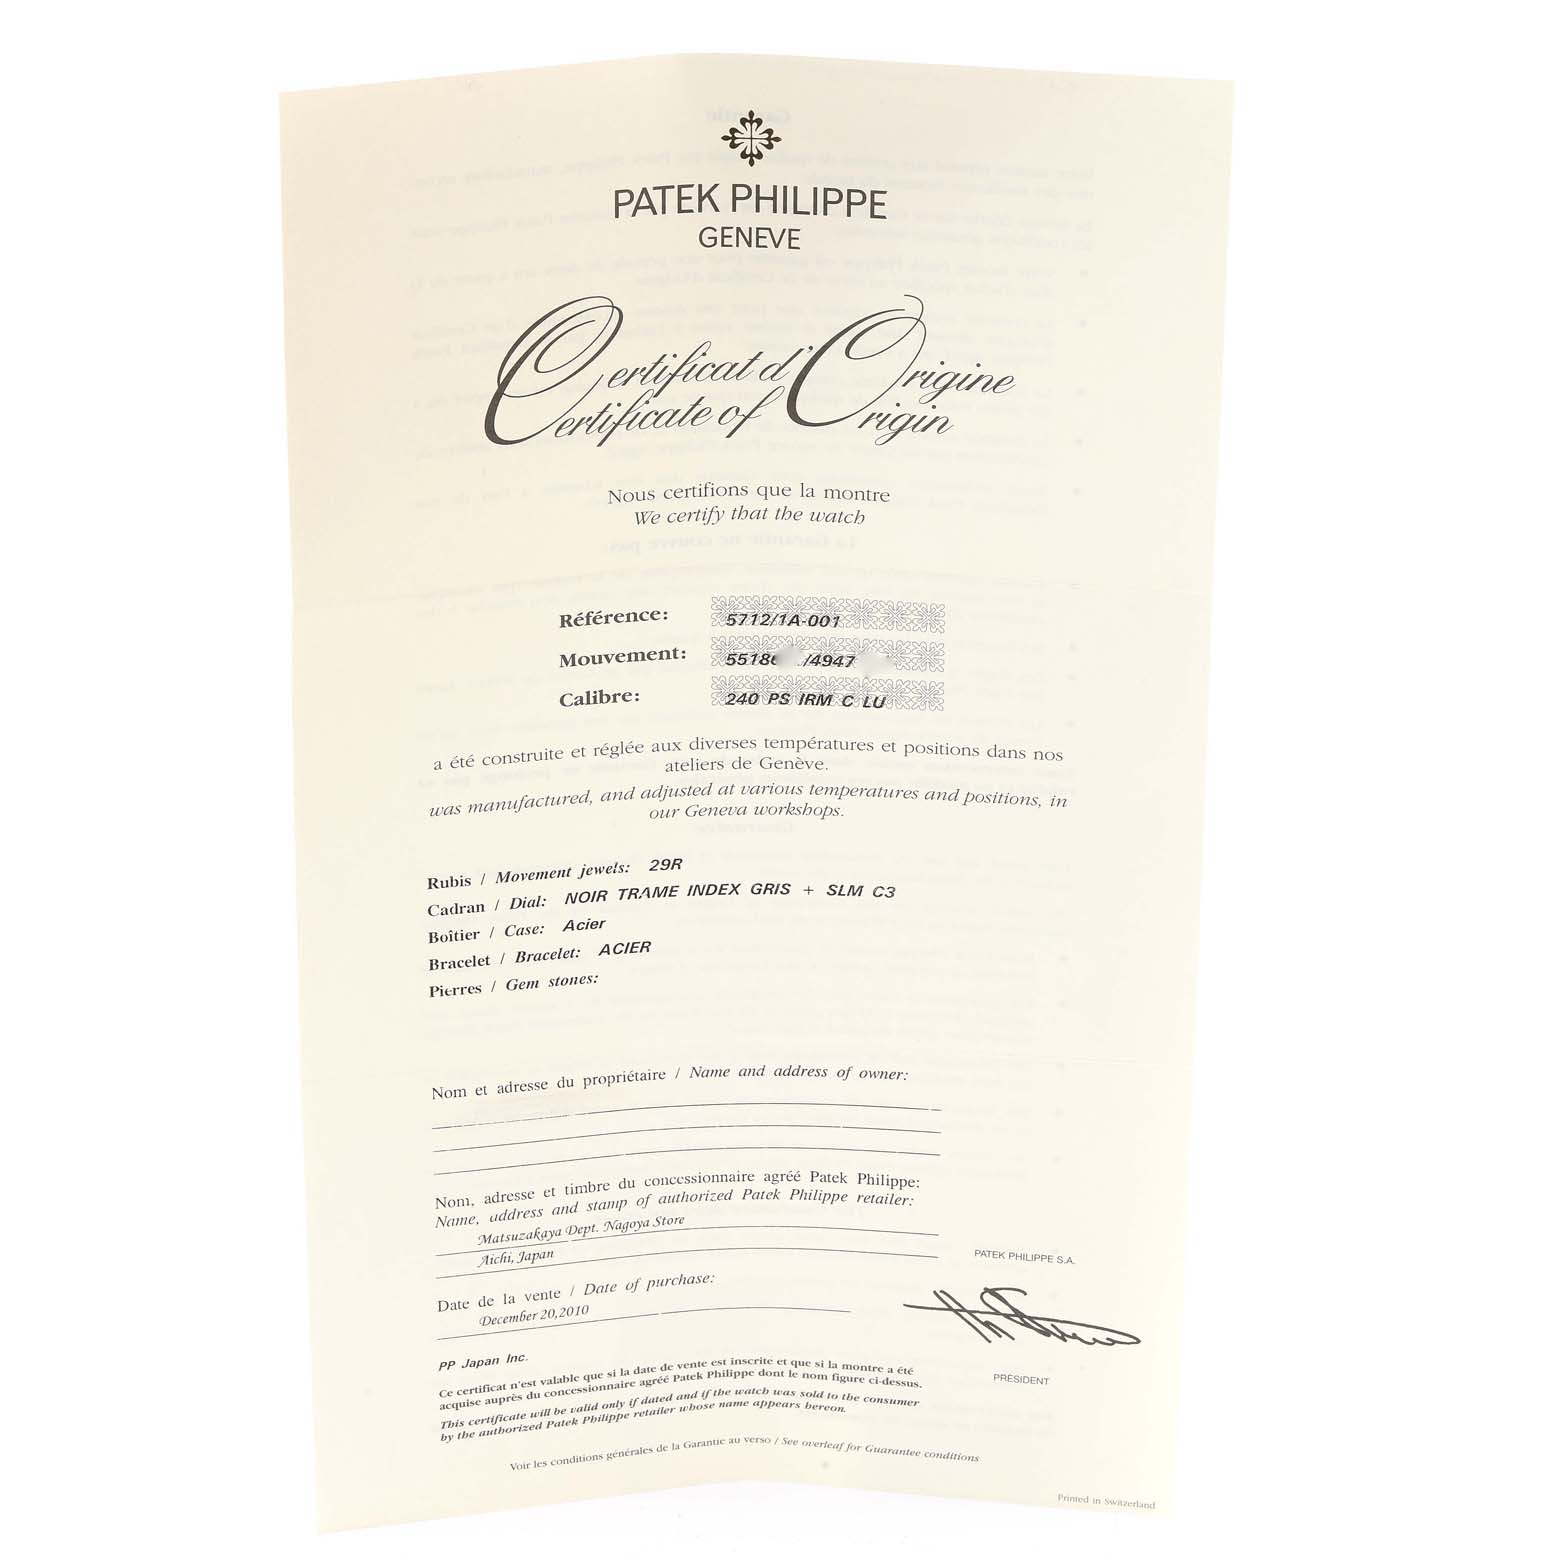 PATEK PHILIPPE
GENEVE
Certificat d'Origine
Certificate of Origin
Nous certifions que la montre
We certify that the watch
Référence: 5712/1A-001
Mouvement: 5518 /4947
Calibre: 240 PS IRM C LU
a été construite et réglée aux diverses températures et positions dans nos
ateliers de Genève.
was manufactured, and adjusted at various temperatures and positions, in
our Geneva workshops.
Rubis / Movement jewels: 29R
Cadran / Dial: NOIR TRAME INDEX GRIS + SLM C3
Boîtier / Case: Acier
Bracelet / Bracelet: ACIER
Pierres / Gem stones:
Nom et adresse du propriétaire / Name and address of owner:
Nom, adresse et timbre du concessionnaire agréé Patek Philippe:
Name, address and stamp of authorized Patek Philippe retailer:
Matsuzakaya Dept. Nagoya Store
Aichi, Japan
PATEK PHILIPPE S.A.
Date de la vente / Date of purchase:
December 20,2010
PP Japan Inc.
PRÉSIDENT
Ce certificat n'est valable que si la date de vente est inscrite et que si la montre a été
acquise auprès du concessionnaire agréé Patek Philippe dont le nom figure ci-dessus.
This certificate will be valid only if dated and if the watch was sold to the consumer
by the authorized Patek Philippe retailer whose name appears hereon.
Voir les conditions générales de la Garantie au verso / See overleaf for Guarantee conditions
Printed in Switzerland